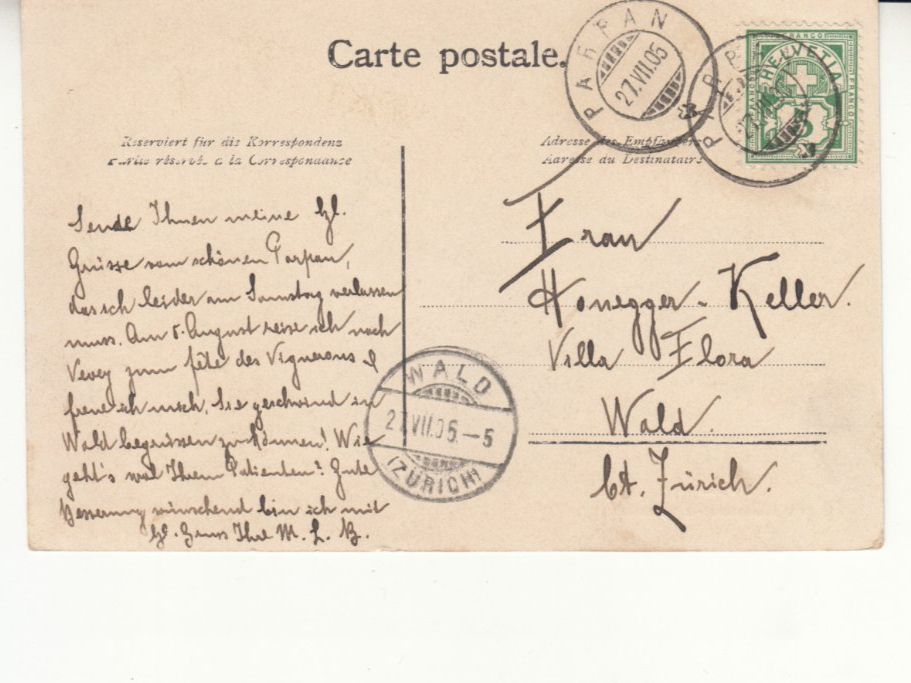 Carte postale.
PARPAN
27.VII.05
PARP
HELVETIA
FRANCO
5
Reserviert für die Korrespondenz
Partie réservée à la Correspondance
Adresse des Empfängers
Adresse du Destinataire
Sende Ihnen meine hzl.
Grüsse vom schönen Parpan,
das ich leider am Samstag verlassen
muss. Am 5. August reise ich nach
Vevey zum fête des Vignerons &
freue ich mich, Sie geschwind in
Wald begrüssen zu können! Wie
geht's wol Ihrem Patienten? Gute
Besserung wünschend bin ich mit
hzl. Gruss Ihre M. L. B.
Frau
Honegger-Keller.
Villa Flora
Wald.
Ct. Zürich.
WALD
27.VII.05.-5
(ZÜRICH)